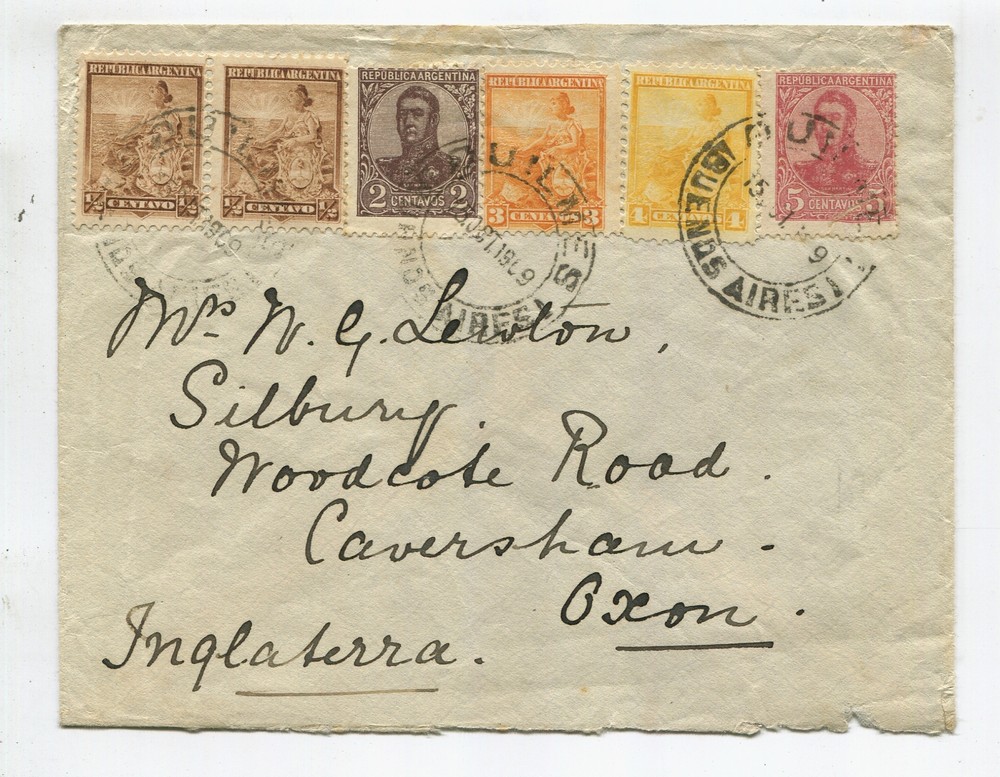 REPÚBLICA ARGENTINA
½ CENTAVO ½
REPÚBLICA ARGENTINA
½ CENTAVO ½
REPÚBLICA ARGENTINA
2 CENTAVOS 2
REPÚBLICA ARGENTINA
3 CENTAVOS 3
REPÚBLICA ARGENTINA
4 CENTAVOS 4
REPÚBLICA ARGENTINA
5 CENTAVOS 5
QUILMES
OCT.1909
(BUENOS AIRES)
Mrs W. G. Lewton,
Silbury.
Woodcote Road.
Caversham.
Oxon.
Inglaterra.